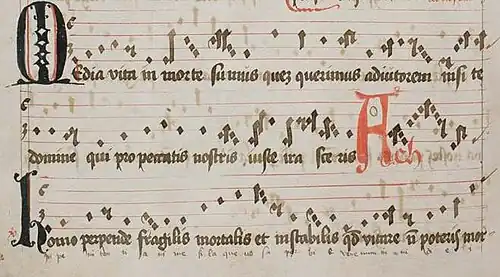 Media vita in morte sumus quez querimus adiutorem nisi te
domine qui pro peccatis nostris iuste ira sceris Ach
Homo perpende fragilis mortalis et instabilis qd viuere n poteris mor